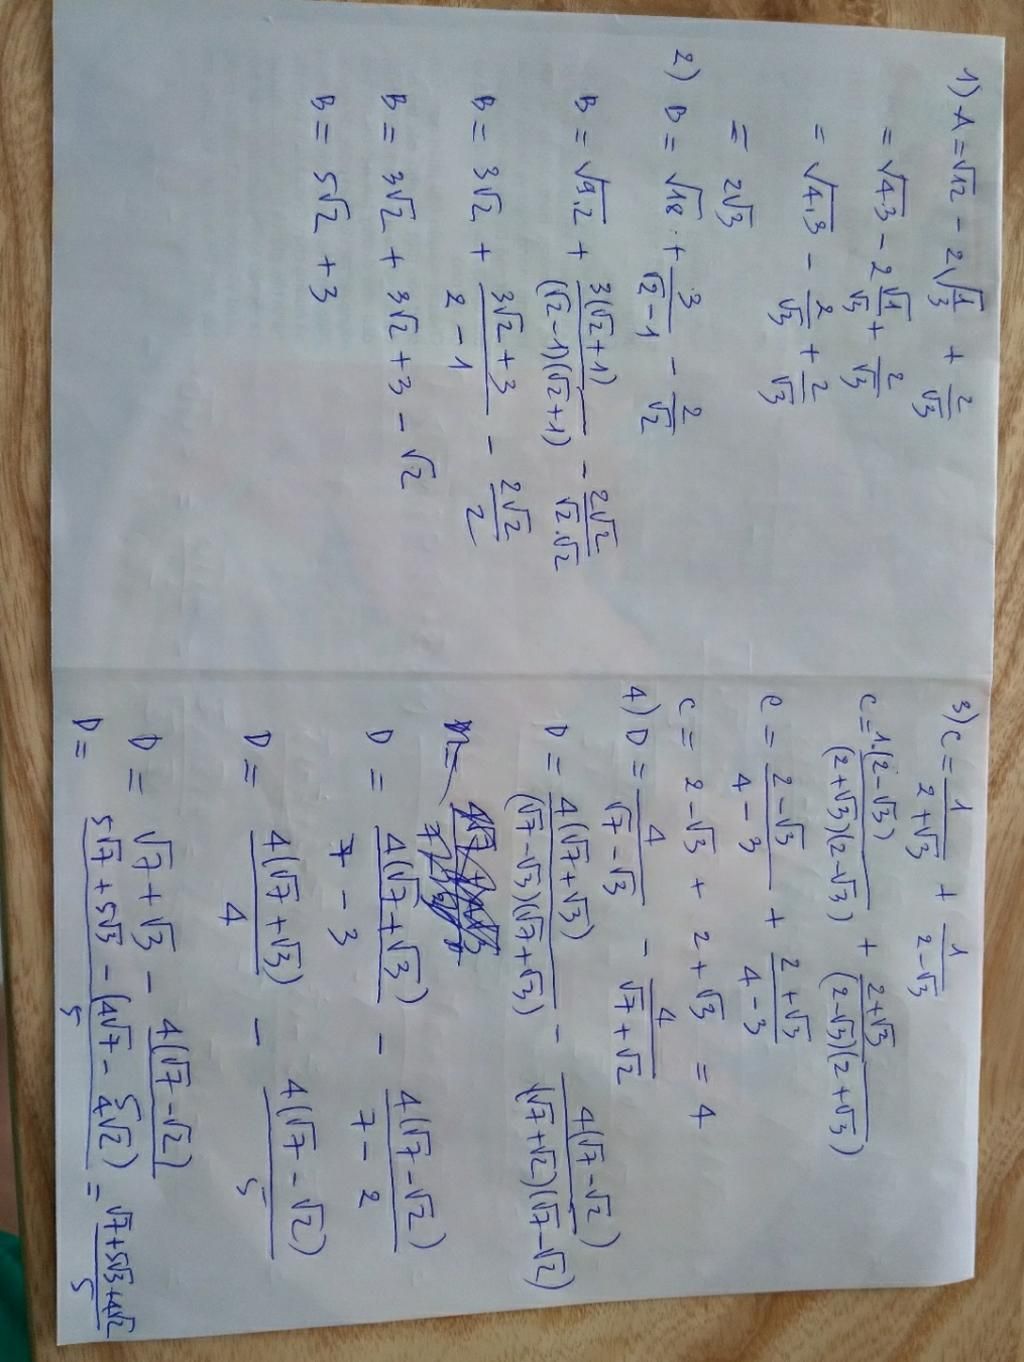 1) A = √12 - 2√(1/3) + 2/√3
= √4.3 - 2 √1/√3 + 2/√3
= √4.3 - 2/√3 + 2/√3
= 2√3
2) B = √18 + 3/(√2 - 1) - 2/√2
B = √9.2 + 3(√2 + 1)/((√2 - 1)(√2 + 1)) - 2√2/(√2.√2)
B = 3√2 + (3√2 + 3)/(2 - 1) - 2√2/2
B = 3√2 + 3√2 + 3 - √2
B = 5√2 + 3
3) C = 1/(2 + √3) + 1/(2 - √3)
C = 1.(2 - √3)/((2 + √3)(2 - √3)) + (2 + √3)/((2 - √3)(2 + √3))
C = (2 - √3)/(4 - 3) + (2 + √3)/(4 - 3)
C = 2 - √3 + 2 + √3 = 4
4) D = 4/(√7 - √3) - 4/(√7 + √2)
D = 4(√7 + √3)/((√7 - √3)(√7 + √3)) - 4(√7 - √2)/((√7 + √2)(√7 - √2))
D = 4(√7 + √3)/(7 - 3) - 4(√7 - √2)/(7 - 2)
D = 4(√7 + √3)/4 - 4(√7 - √2)/5
D = √7 + √3 - 4(√7 - √2)/5
D = (5√7 + 5√3 - (4√7 - 4√2))/5 = (√7 + 5√3 + 4√2)/5